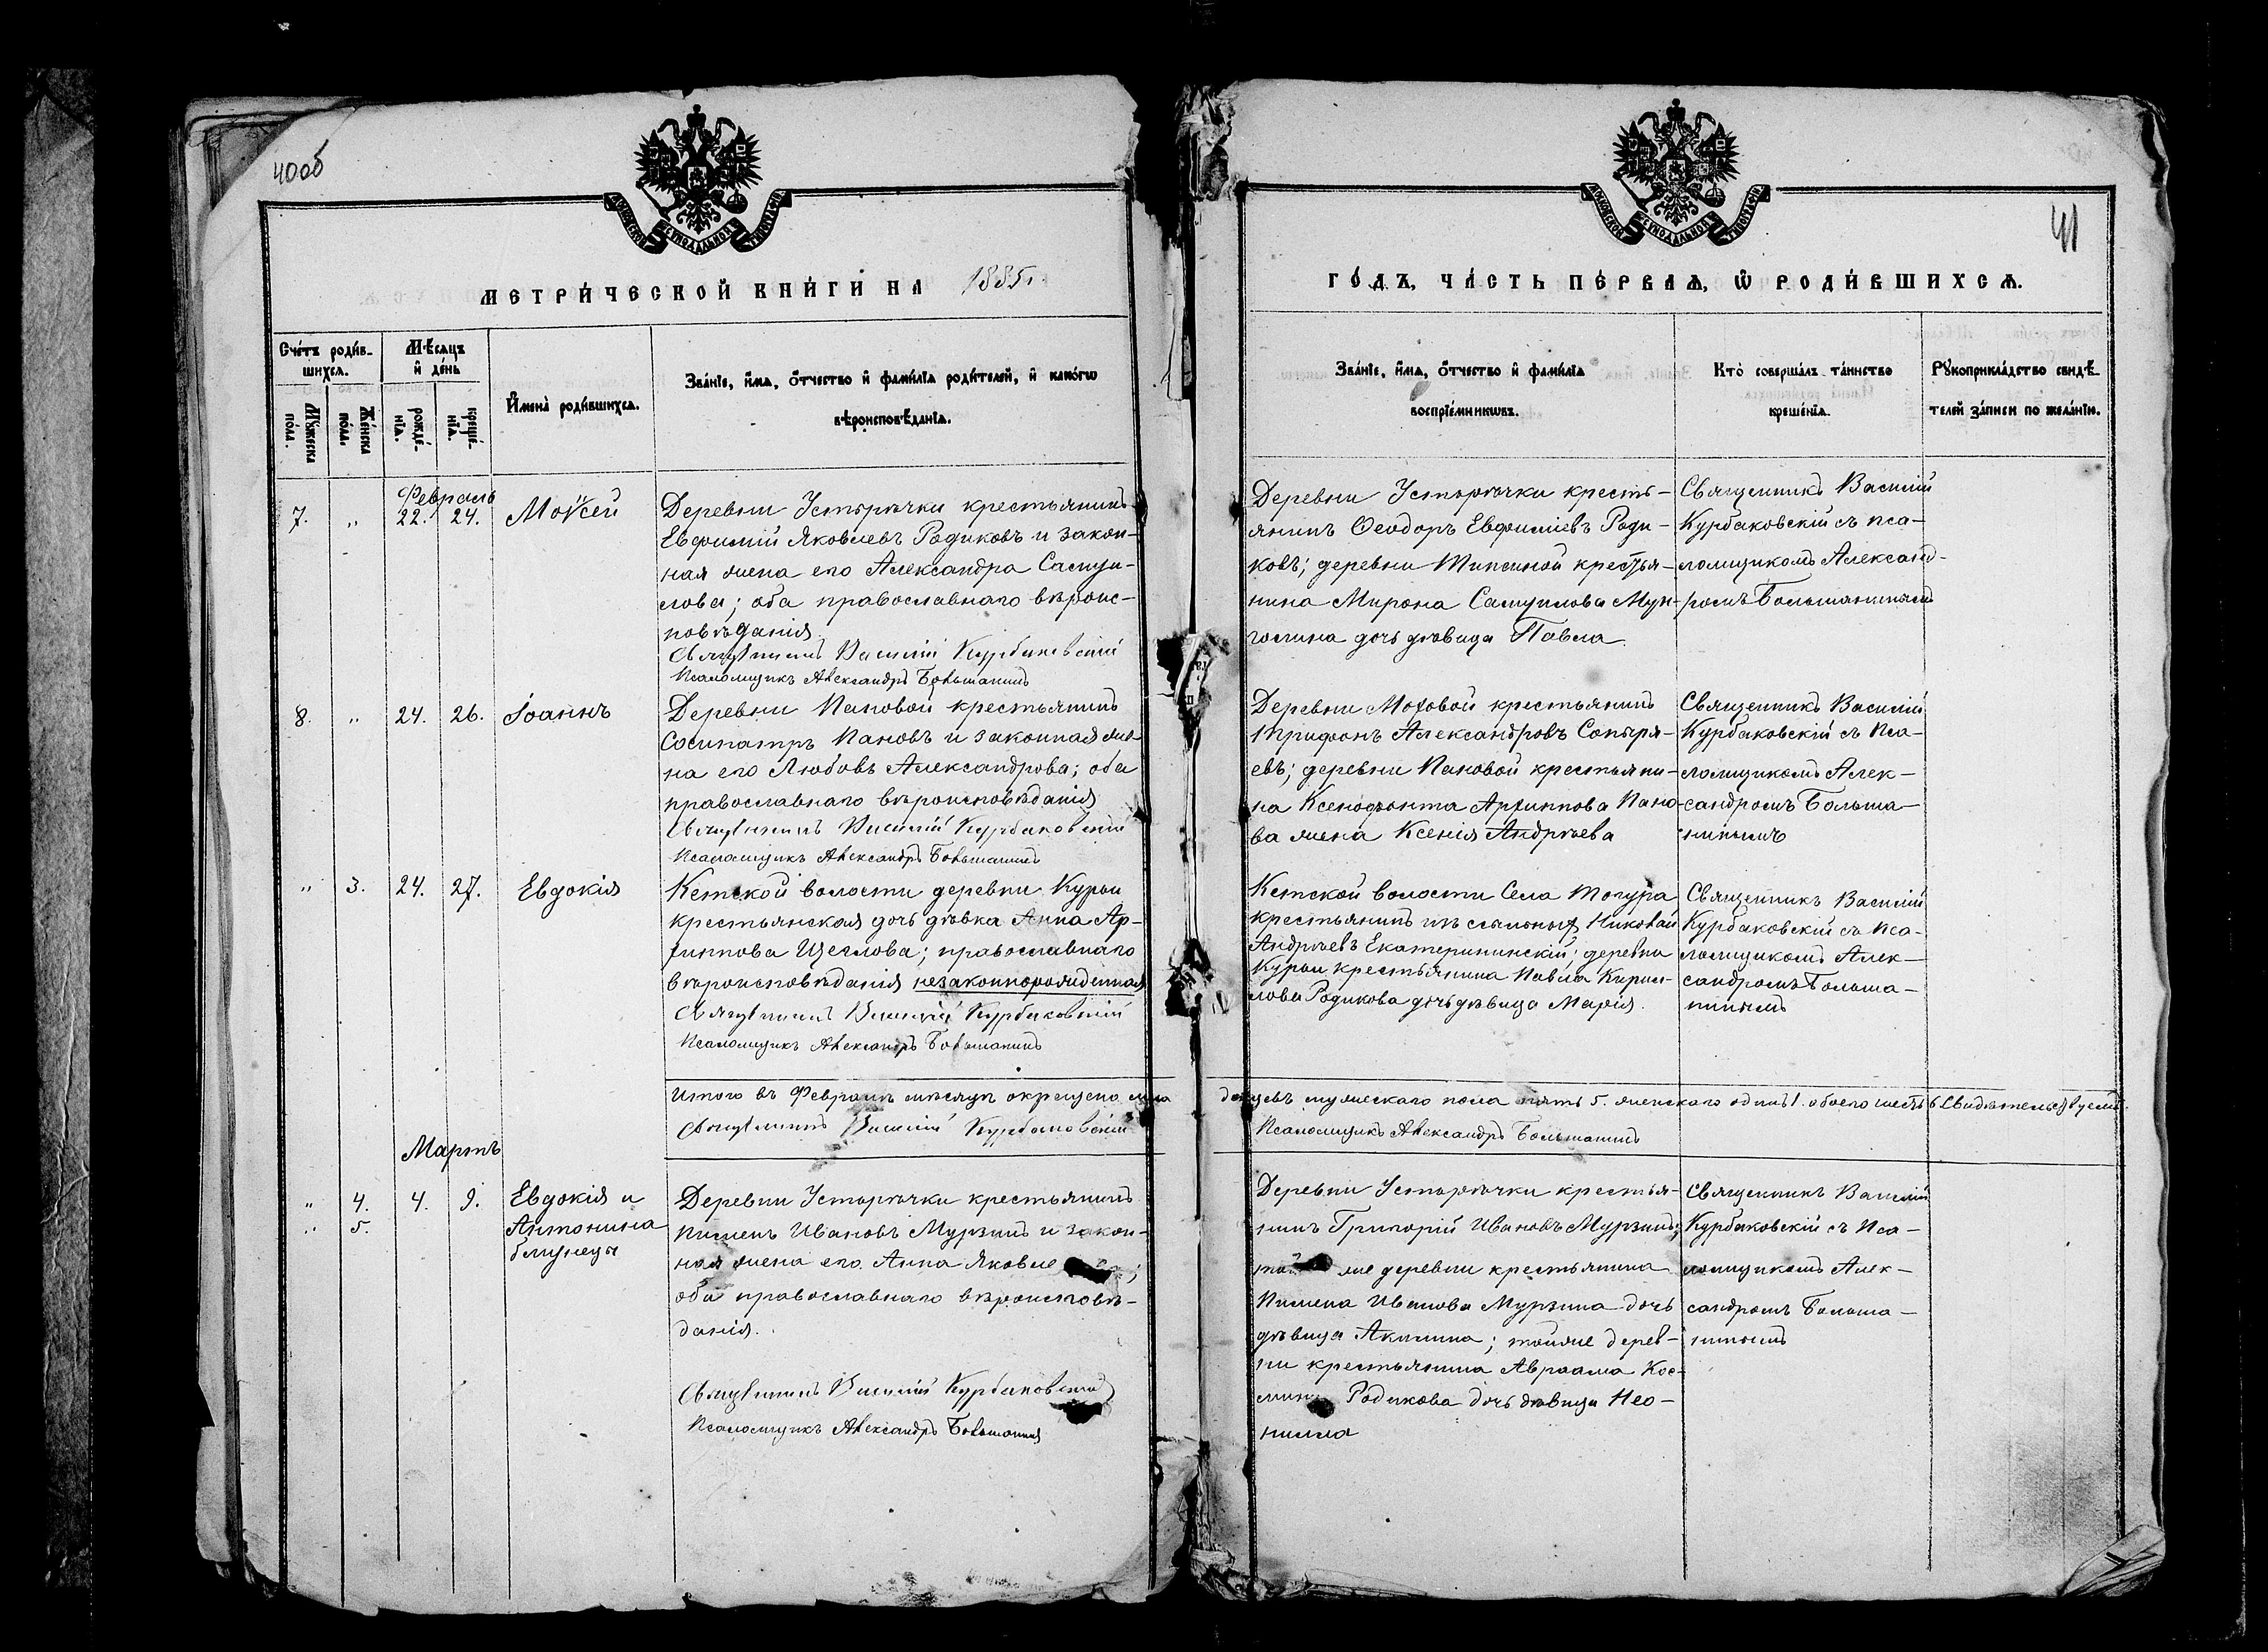 40об
41
МОСКОВСКОЙ СѴНОДАЛЬНОЙ ТИПОГРАФІИ
МОСКОВСКОЙ СѴНОДАЛЬНОЙ ТИПОГРАФІИ
МЕТРИ́ЧЕСКОЙ КНИ́ГИ НА 1885 г.
ГО́ДЪ, ЧА́СТЬ ПЕ́РВАѦ, Ѡ҆ РОДИ́ВШИХСѦ.
Сче́тъ роди́в-
шихсѧ.
Мѣ́сѧцъ
и҆ де́нь
Мꙋ́жеска
по́ла.
Же́нска
по́ла.
рожде́-
нїѧ.
креще́-
нїѧ.
И҆мена̀ роди́вшихсѧ.
Зва́нїе, и҆́мѧ, ѻ҆́тчество и҆ фами́лїѧ роди́телей, и҆ како́гѡ
вѣроисповѣ́данїѧ.
Зва́нїе, и҆́мѧ, ѻ҆́тчество и҆ фами́лїѧ
воспрїе́мникѡвъ.
Кто̀ соверша́лъ та́инство
креще́нїѧ.
Рꙋкоприкла́дство свидѣ́-
телей за́писи по жела́нїю.
Февраль
7. „ 22. 24. Моѵсей
Деревни Устьрѣчки крестьянинъ
Евфимій Яковлевъ Родиковъ и закон-
ная жена его Александра Самуи-
лова; оба православнаго вѣроис-
повѣданія.
Священникъ Василій Курбаковскій
Псаломщикъ Александръ Большанинъ
Деревни Устьрѣчки кресть-
янинъ Ѳеодоръ Евфиміевъ Роди-
ковъ; деревни Типсиной крестья-
нина Мирона Самуилова Мун-
голина дочь дѣвица Павла.
Священникъ Василій
Курбаковскій съ пса-
ломщикомъ Александ-
ромъ Большанинымъ
8. „ 24. 26. Іоаннъ
Деревни Пановой крестьянинъ
Сосипатръ Пановъ и законная же-
на его Любовь Александрова; оба
православнаго вѣроисповѣданія
Священникъ Василій Курбаковскій
Псаломщикъ Александръ Большанинъ
Деревни Моховой крестьянинъ
Трифонъ Александровъ Сопыря-
евъ; деревни Пановой крестьяни-
на Ксенофонта Архиппова Пано-
ва жена Ксенія Андреева
Священникъ Василій
Курбаковскій съ Пса-
ломщикомъ Алек-
сандромъ Больша-
нинымъ
„ 3. 24. 27. Евдокія
Кетской волости деревни Курьи
крестьянская дочь дѣвка Анна Ар-
хиппова Щеглова; православнаго
вѣроисповѣданія незаконнорожденная
Священникъ Василій Курбаковскій
Псаломщикъ Александръ Большанинъ
Кетской волости Села Тогура
крестьянинъ изъ ссыльныхъ Николай
Андреевъ Екатерининскій; деревни
Курьи крестьянина Павла Кирил-
лова Родикова дочь дѣвица Марія.
Священникъ Василій
Курбаковскій съ Пса-
ломщикомъ Алек-
сандромъ Больша-
нинымъ
Итого въ Февралѣ мѣсяцѣ окрещено мла денцевъ мужескаго пола пять 5. женскаго одинъ 1. обоего шесть 6 Свидѣтельствуемъ.
Священникъ Василій Курбаковскій
Псаломщикъ Александръ Большанинъ
Мартъ
„ 4. 4. 9. Евдокія и
„ 5. Антонина
близнецы
Деревни Устьрѣчки крестьянинъ
Пименъ Ивановъ Мурзинъ и закон-
ная жена его Анна Яковле
оба православнаго вѣроисповѣ-
данія.
Священникъ Василій Курбаковскій
Псаломщикъ Александръ Большанинъ
Деревни Устьрѣчки крестья-
нинъ Григорій Ивановъ Мурзинъ;
той же деревни крестьянина
Пимена Иванова Мурзина дочь
дѣвица Акилина; тойже дерев-
ни крестьянина Авраама Кос-
мина Родикова дочь дѣвица Нео-
нилла
Священникъ Василій
Курбаковскій съ Пса-
ломщикомъ Алек-
сандромъ Больша-
нинымъ